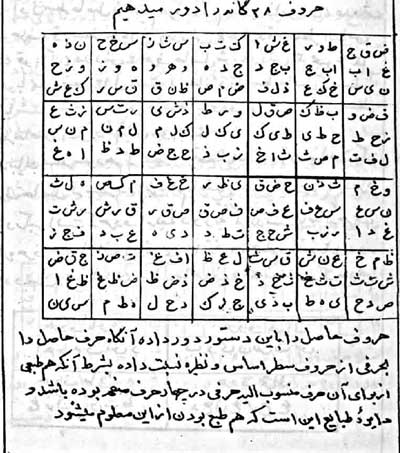 حروف ۲۸ گانه را دور میدهیم
ض ق ج ط د ر غ ش ا ك ت ب س ث ز س خ ح ن ذ ه
غ ا ب ا ب ج ب ج د ج د ه د ه و ه و ز و ز ح
ن ی س خ ك ع ذ ل ف ض م ص ظ ن ق ق س ر ك ع ش
ف ض و ب ظ ك ص ق ل و ر ط ذ ش ی ر ت س ز ث ع
ز ح ط ح ط ی ط ی ك ی ك ل ك ل م ل م ن م ن س
ل ف ت م ص ث ث ا خ ز ب ذ ج ج ض ط د ظ ا ه غ
و خ م ث ذ ن ح ض ق ی ظ ر خ غ ف م ك ص ه ل ث
ن س ع س ع ف ع ف ص ف ص ق ص ق ر ق ر ش ر ش ت
غ د ا ر ز ب ش ح ج ت ط د د ی ه ع ب د ف ج ز
ظ م خ ع ن ش ق س ث ل ع ظ ا ف غ ت ص ذ ج ق ض
ش ت ث ت ث خ ث خ ذ خ ذ ض ذ ض ظ ض ظ غ ظ غ ا
ص د ح ی ه ط ب ذ ی ج ل ك د ح ل ه ط م س ی ن
حروف حاصل را باین دستور دور داده آنگاه حرف حاصل را
بحرفی از حروف سطر اساس و نظیره نسبت داده بشرط آنكه هم طبعی
از برای آن حرف منسوب الیه حرفی در چهار حرف ضلع بوده باشد و
دایرهٔ طبایع این است كه هم طبع بودن از این معلوم میشود